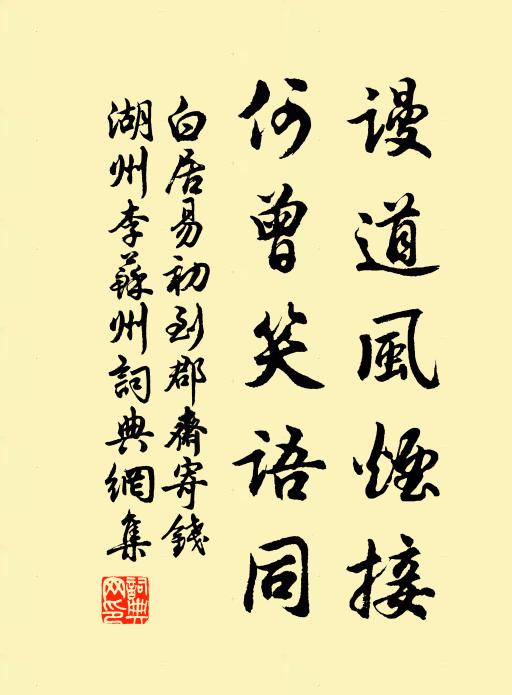 謾道風煙接
何曾笑語同
白居易初到郡齋寄錢
湖州李蘇州詞典網集